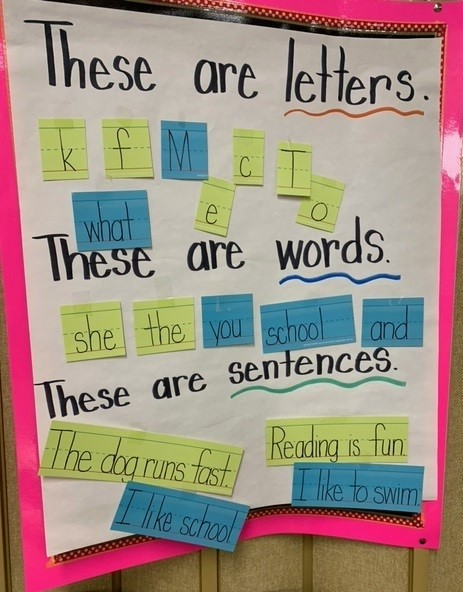 These are letters.
k f M c T
e o
what
These are words.
she the you school and
These are sentences.
The dog runs fast.
Reading is fun.
I like to swim.
I like school